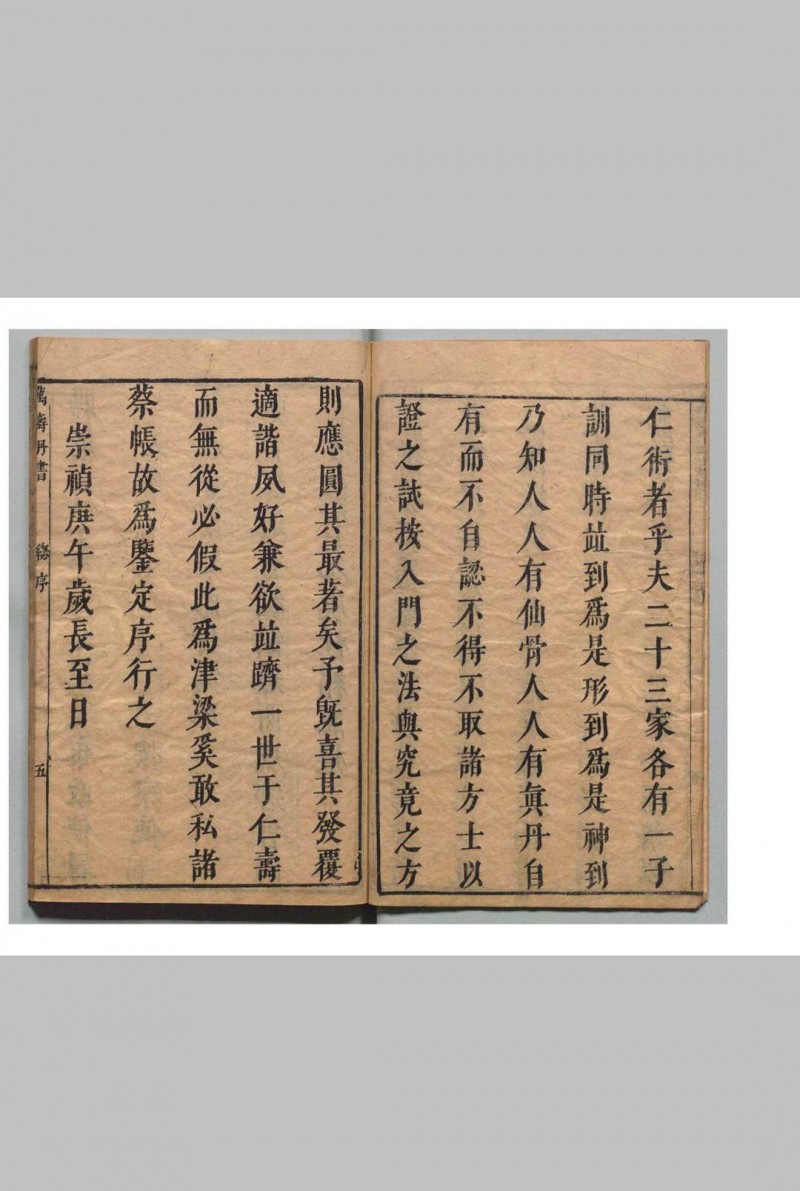 仁術者乎夫二十三家各有一子
訓同時竝到爲是形到爲是神到
乃知人人有仙骨人人有眞丹自
有而不自認不得不取諸方士以
證之試按入門之法與究竟之方
則應圓其最著矣予旣喜其發覆
適諧夙好兼欲竝躋一世于仁壽
而無從必假此爲津梁奚敢私諸
蔡帳故爲鑒定序行之
崇禎庚午歲長至日
萬壽丹書 總序 五